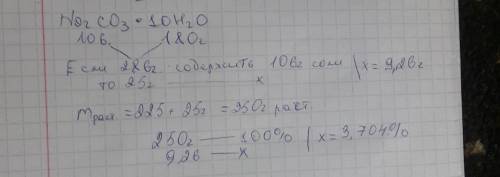 Na₂CO₃ · 10H₂O
106 180г
Если 286г содержить 106г соли | x = 9,26г
то 25г — x
mраст = 225 + 25г = 250г раст.
250г — 100% | x = 3,704%
9,26 — x